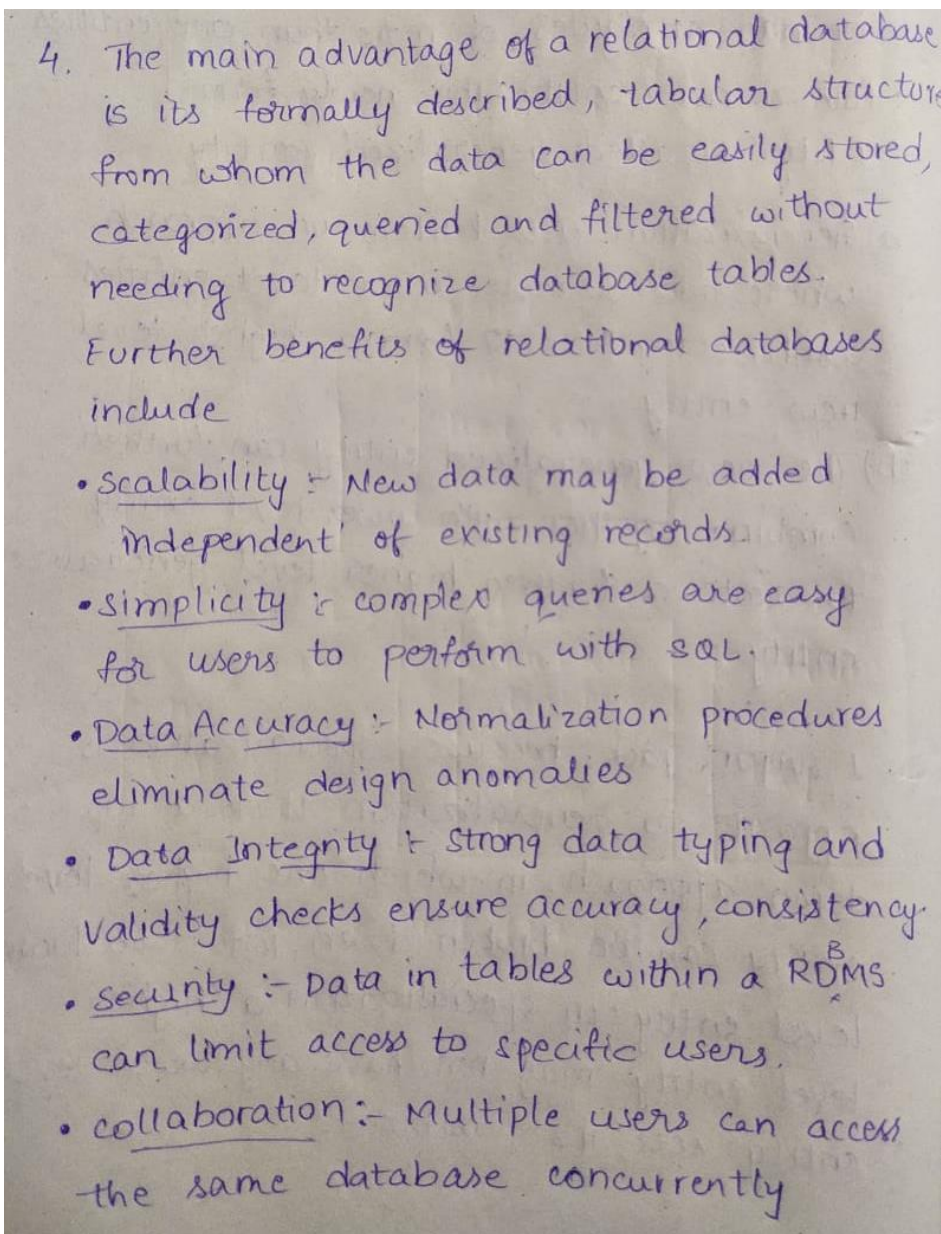 4. The main advantage of a relational database
is its formally described, tabular structure
from whom the data can be easily stored,
categorized, queried and filtered without
needing to recognize database tables.
Further benefits of relational databases
include
• Scalability :- New data may be added
independent of existing records.
• Simplicity :- complex queries are easy
for users to perform with SQL.
• Data Accuracy :- Normalization procedures
eliminate design anomalies
• Data Integrity :- Strong data typing and
validity checks ensure accuracy, consistency.
• Security :- Data in tables within a RDBMS
can limit access to specific users.
• collaboration :- Multiple users can access
the same database concurrently